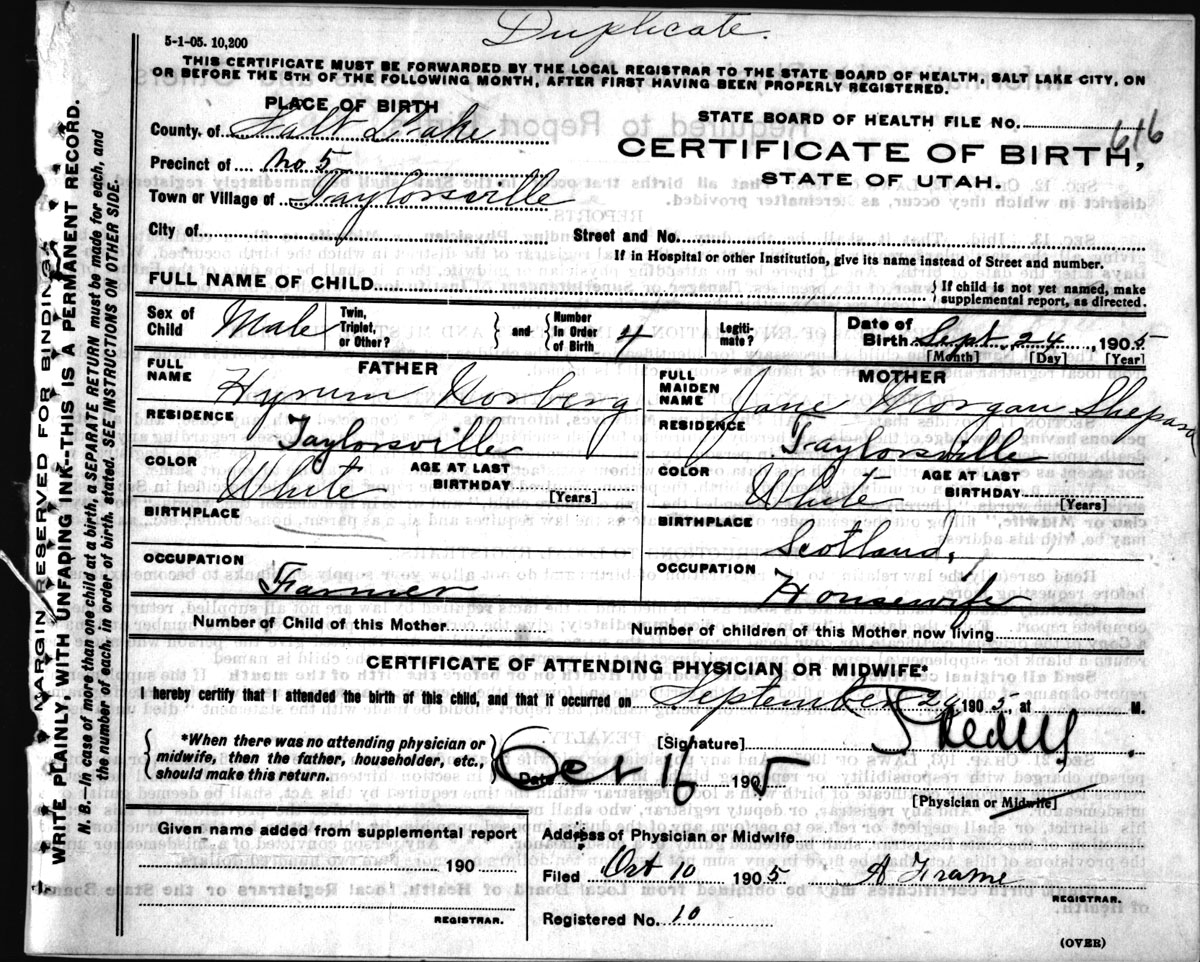 Duplicate.
5-1-05. 10,200
THIS CERTIFICATE MUST BE FORWARDED BY THE LOCAL REGISTRAR TO THE STATE BOARD OF HEALTH, SALT LAKE CITY, ON
OR BEFORE THE 5TH OF THE FOLLOWING MONTH, AFTER FIRST HAVING BEEN PROPERLY REGISTERED.
PLACE OF BIRTH
County of Salt Lake
Precinct of No. 5
Town or Village of Taylorsville
City of
STATE BOARD OF HEALTH FILE NO. 616
CERTIFICATE OF BIRTH,
STATE OF UTAH.
Street and No.
If in Hospital or other Institution, give its name instead of Street and number.
FULL NAME OF CHILD
} If child is not yet named, make
supplemental report, as directed.
Sex of Child Male
Twin, Triplet, or Other?
} and { Number in Order of Birth 4
Legitimate?
Date of Birth Sept 24, 1905
[Month] [Day] [Year]
FATHER
FULL NAME Hyrum Norberg
RESIDENCE Taylorsville
COLOR White
AGE AT LAST BIRTHDAY
[Years]
BIRTHPLACE
OCCUPATION Farmer
MOTHER
FULL MAIDEN NAME Jane Morgan
RESIDENCE Taylorsville
COLOR White
AGE AT LAST BIRTHDAY
[Years]
BIRTHPLACE Scotland,
OCCUPATION Housewife
Number of Child of this Mother
Number of children of this Mother now living
CERTIFICATE OF ATTENDING PHYSICIAN OR MIDWIFE*
I hereby certify that I attended the birth of this child, and that it occurred on September 24, 1905, at M.
{ *When there was no attending physician or
midwife, then the father, householder, etc.,
should make this return. }
[Signature]
Date Oct 16 1905
[Physician or Midwife]
Given name added from supplemental report
190
REGISTRAR.
Address of Physician or Midwife
Filed Oct 10 1905 A Frame
REGISTRAR.
Registered No. 10
(OVER)
MARGIN RESERVED FOR BINDING.
WRITE PLAINLY, WITH UNFADING INK--THIS IS A PERMANENT RECORD.
N. B.—In case of more than one child at a birth, a SEPARATE RETURN must be made for each, and
the number of each, in order of birth, stated. SEE INSTRUCTIONS ON OTHER SIDE.